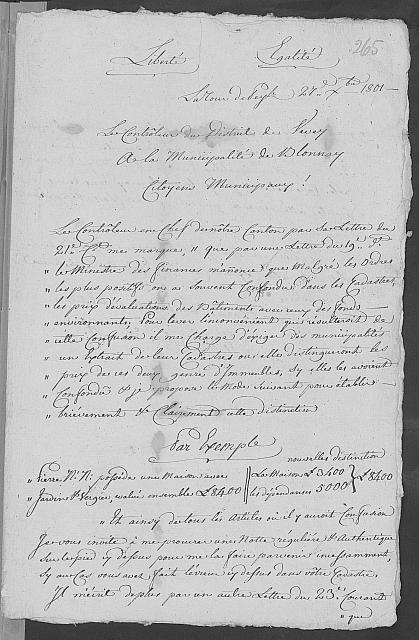 265
Liberté Egalité
La Tour de Peylz 24e Xbre 1801
Le Contrôleur du District de Vevey
A la Municipalité de Blonnay
Citoyens Municipaux !
Le Contrôleur en Chef de nôtre Canton par sa Lettre du
21e me marque, " que par une Lettre du 19e
" le Ministre des finances m'anonce que Malgré les Ordres
" les plus positifs on a souvent Confondu Dans les Cadastres,
" les prix d'évaluations des Bâtiments avec ceux des fonds
" environnants; Pour lever l'inconvénient que résulteroit de
" cette Confusion il me Charge d'éxiger des municipalités
" un Extrait de leur Cadastres ou elle distingueront les
" prix de ces deux genre d'Immeubles, sy elles les avoient
" Confondu & je propose le Mode Suivant pour établir
" briévement & Clairement cette distinction
Par Exemple
nouvelles distinction
" Pierre N: N: possède une Maison avec
Jardin & Verger, évalué ensemble £ 8400
La Maison £ 3400
les dépendances 5000
£ 8400
" Et ainsy de tous les Articles où il y auroit Confusion
Je vous invite à me procurer une Notte régulière & Authentique
sur le pied cy dessus pour me la faire parvenir incessamment,
sy au Cas vous avez fait l'érreur cy dessus dans vôtre Cadastre.
Il m'écrit de plus par un autre Lettre du 23e Courant
" que